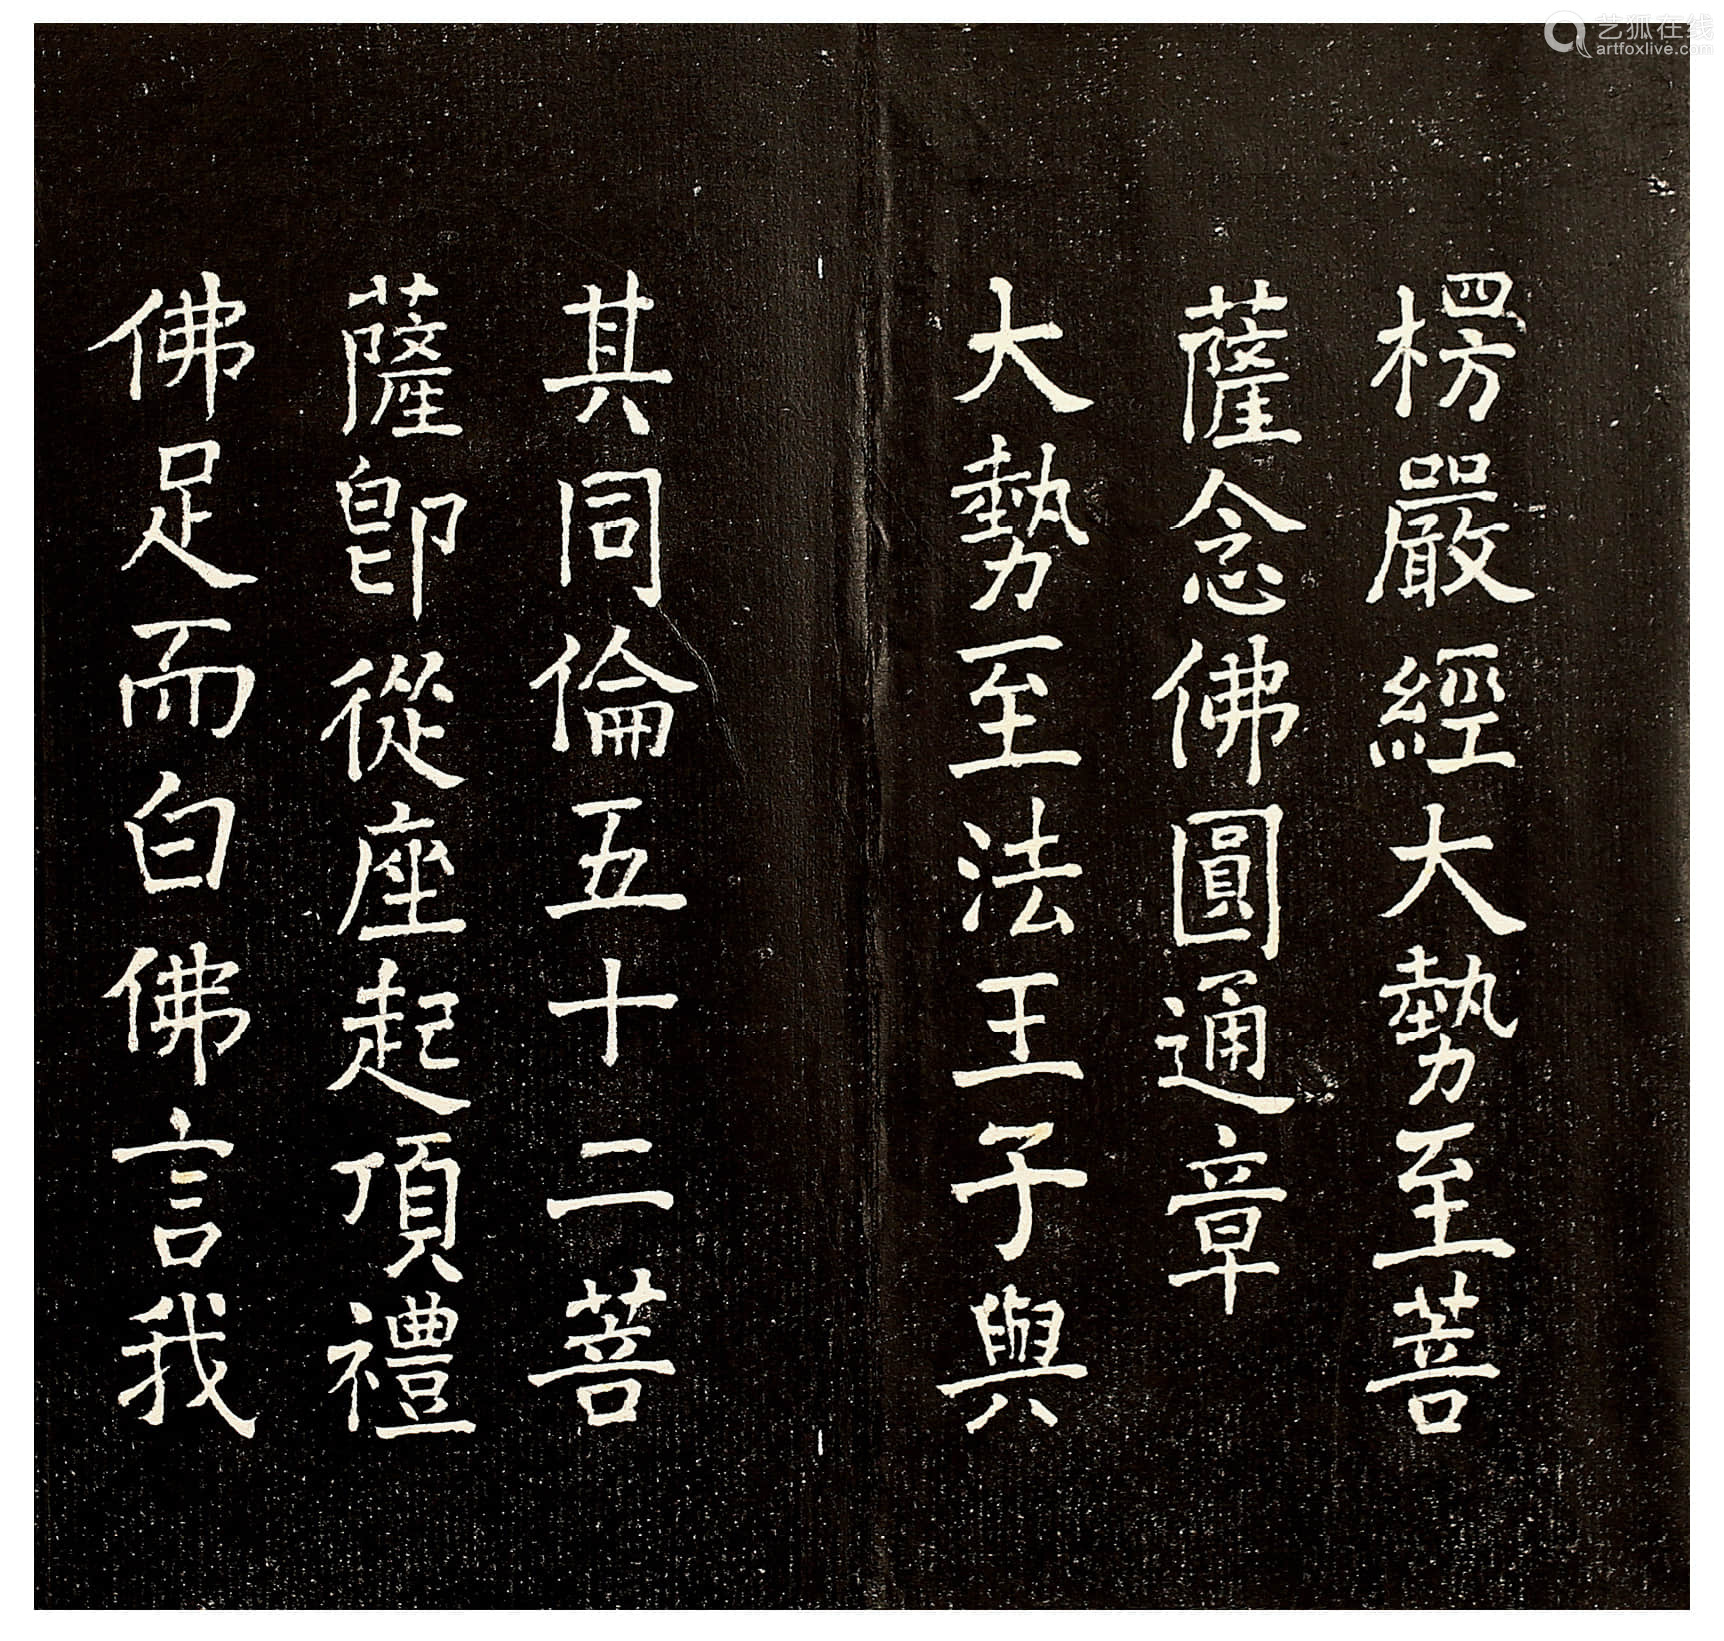 楞嚴經大勢至菩
薩念佛圓通章
大勢至法王子與
其同倫五十二菩
薩卽從座起頂禮
佛足而白佛言我
艺狐在线
artfoxlive.com